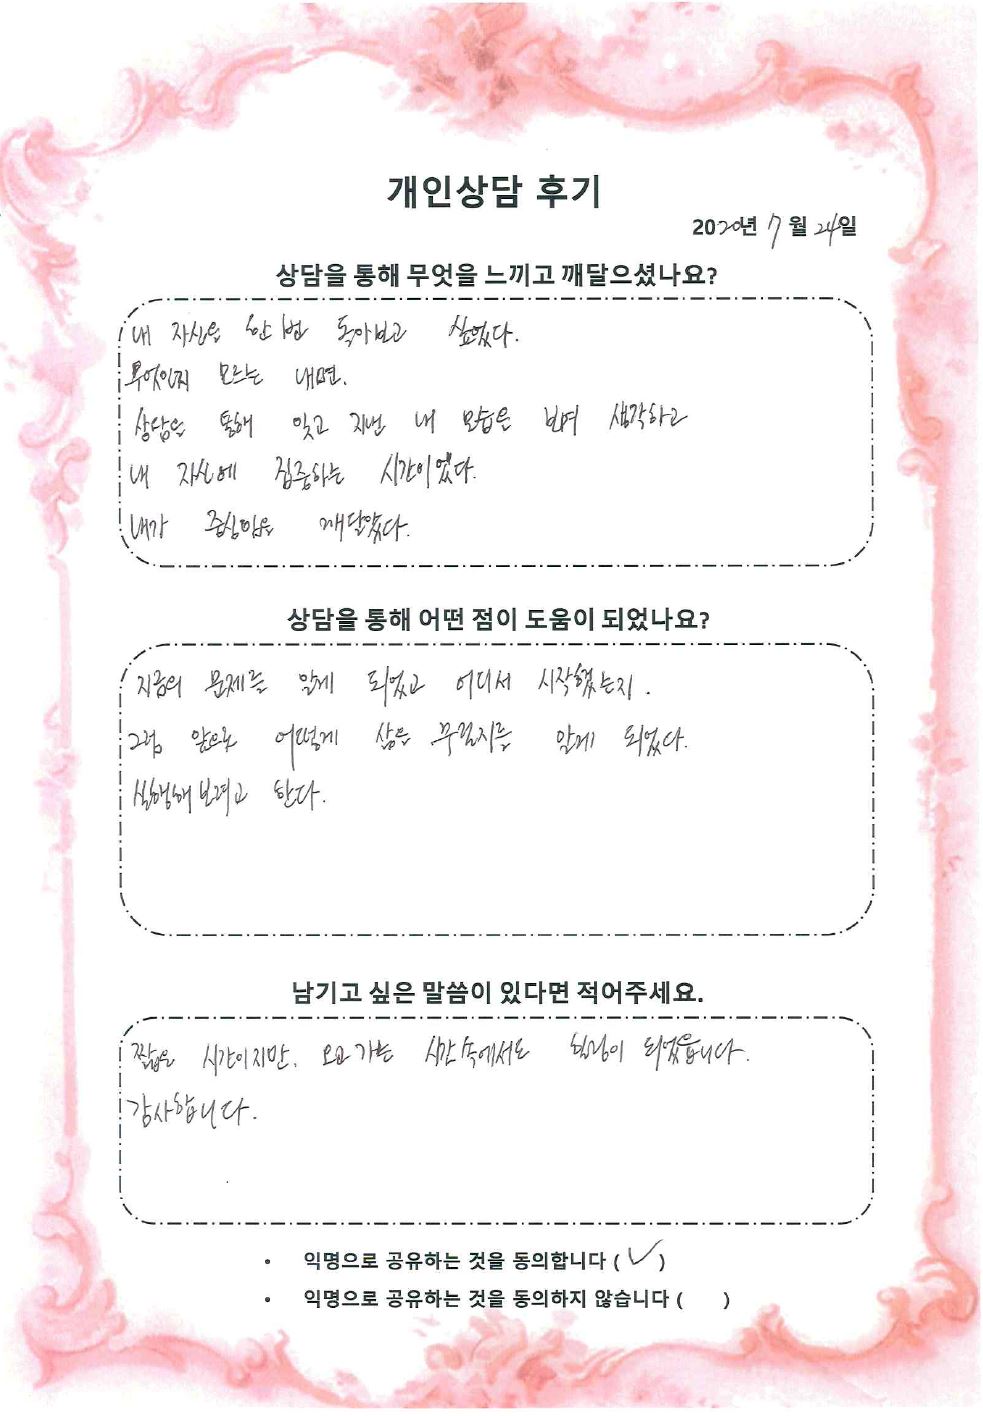 개인상담 후기
2020년 7월 24일
상담을 통해 무엇을 느끼고 깨달으셨나요?
내 자신을 한번 돌아보고 싶었다.
무엇인지 모르는 내면.
상담을 통해 잊고 지낸 내 모습은 보며 생각하고
내 자신에 집중하는 시간이었다.
내가 중심임을 깨달았다.
상담을 통해 어떤 점이 도움이 되었나요?
지금의 문제를 알게 되었고 어디서 시작했는지.
그럼 앞으로 어떻게 삶을 꾸릴지를 알게 되었다.
실행해보려고 한다.
남기고 싶은 말씀이 있다면 적어주세요.
짧은 시간이지만, 오고가는 시간속에서도 힐링이 되었읍니다.
감사합니다.
• 익명으로 공유하는 것을 동의합니다 ( ✓ )
• 익명으로 공유하는 것을 동의하지 않습니다 ( )